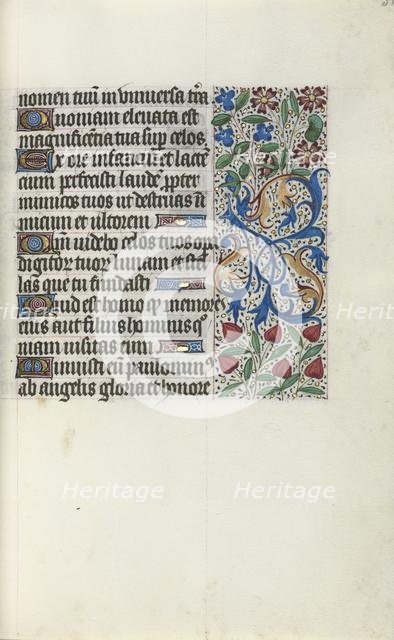 nomen tuũ in vniuersa tr̃a
Quoniam eleuata est
magnificẽtia tua sup̱ celos.
Ex ore infantiũ et lactẽ
cium perfecisti laudẽ p̱pter
inimicos tuos ut destruas ĩ
micum et ultorem
Qm̃ uidebo celos tuos op̱a
digitor̃ tuor̃ lunam et stel
las que tu fundasti
Quid est homo q̃ memor es
eius aut filius hominis q̃
niam uisitas eum
Minuisti eũ paulominꝰ
ab angelis gloria et honore
Heritage
Heritage
Heritage
Heritage
Heritage
Heritage